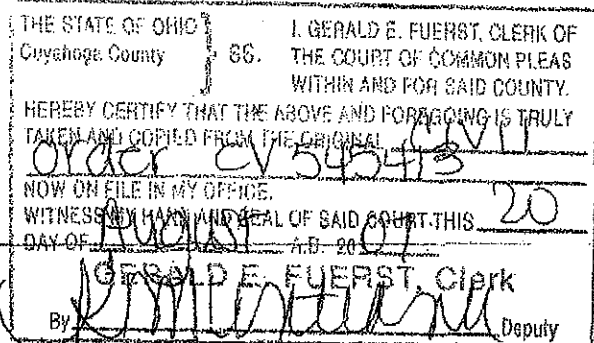 THE STATE OF OHIO } SS. I, GERALD E. FUERST, CLERK OF
Cuyahoga County THE COURT OF COMMON PLEAS
WITHIN AND FOR SAID COUNTY.
HEREBY CERTIFY THAT THE ABOVE AND FOREGOING IS TRULY
TAKEN AND COPIED FROM THE ORIGINAL Civil
order CV 545473
NOW ON FILE IN MY OFFICE.
WITNESS MY HAND AND SEAL OF SAID COURT THIS 20
DAY OF August A.D. 20 07
GERALD E. FUERST, Clerk
By Deputy